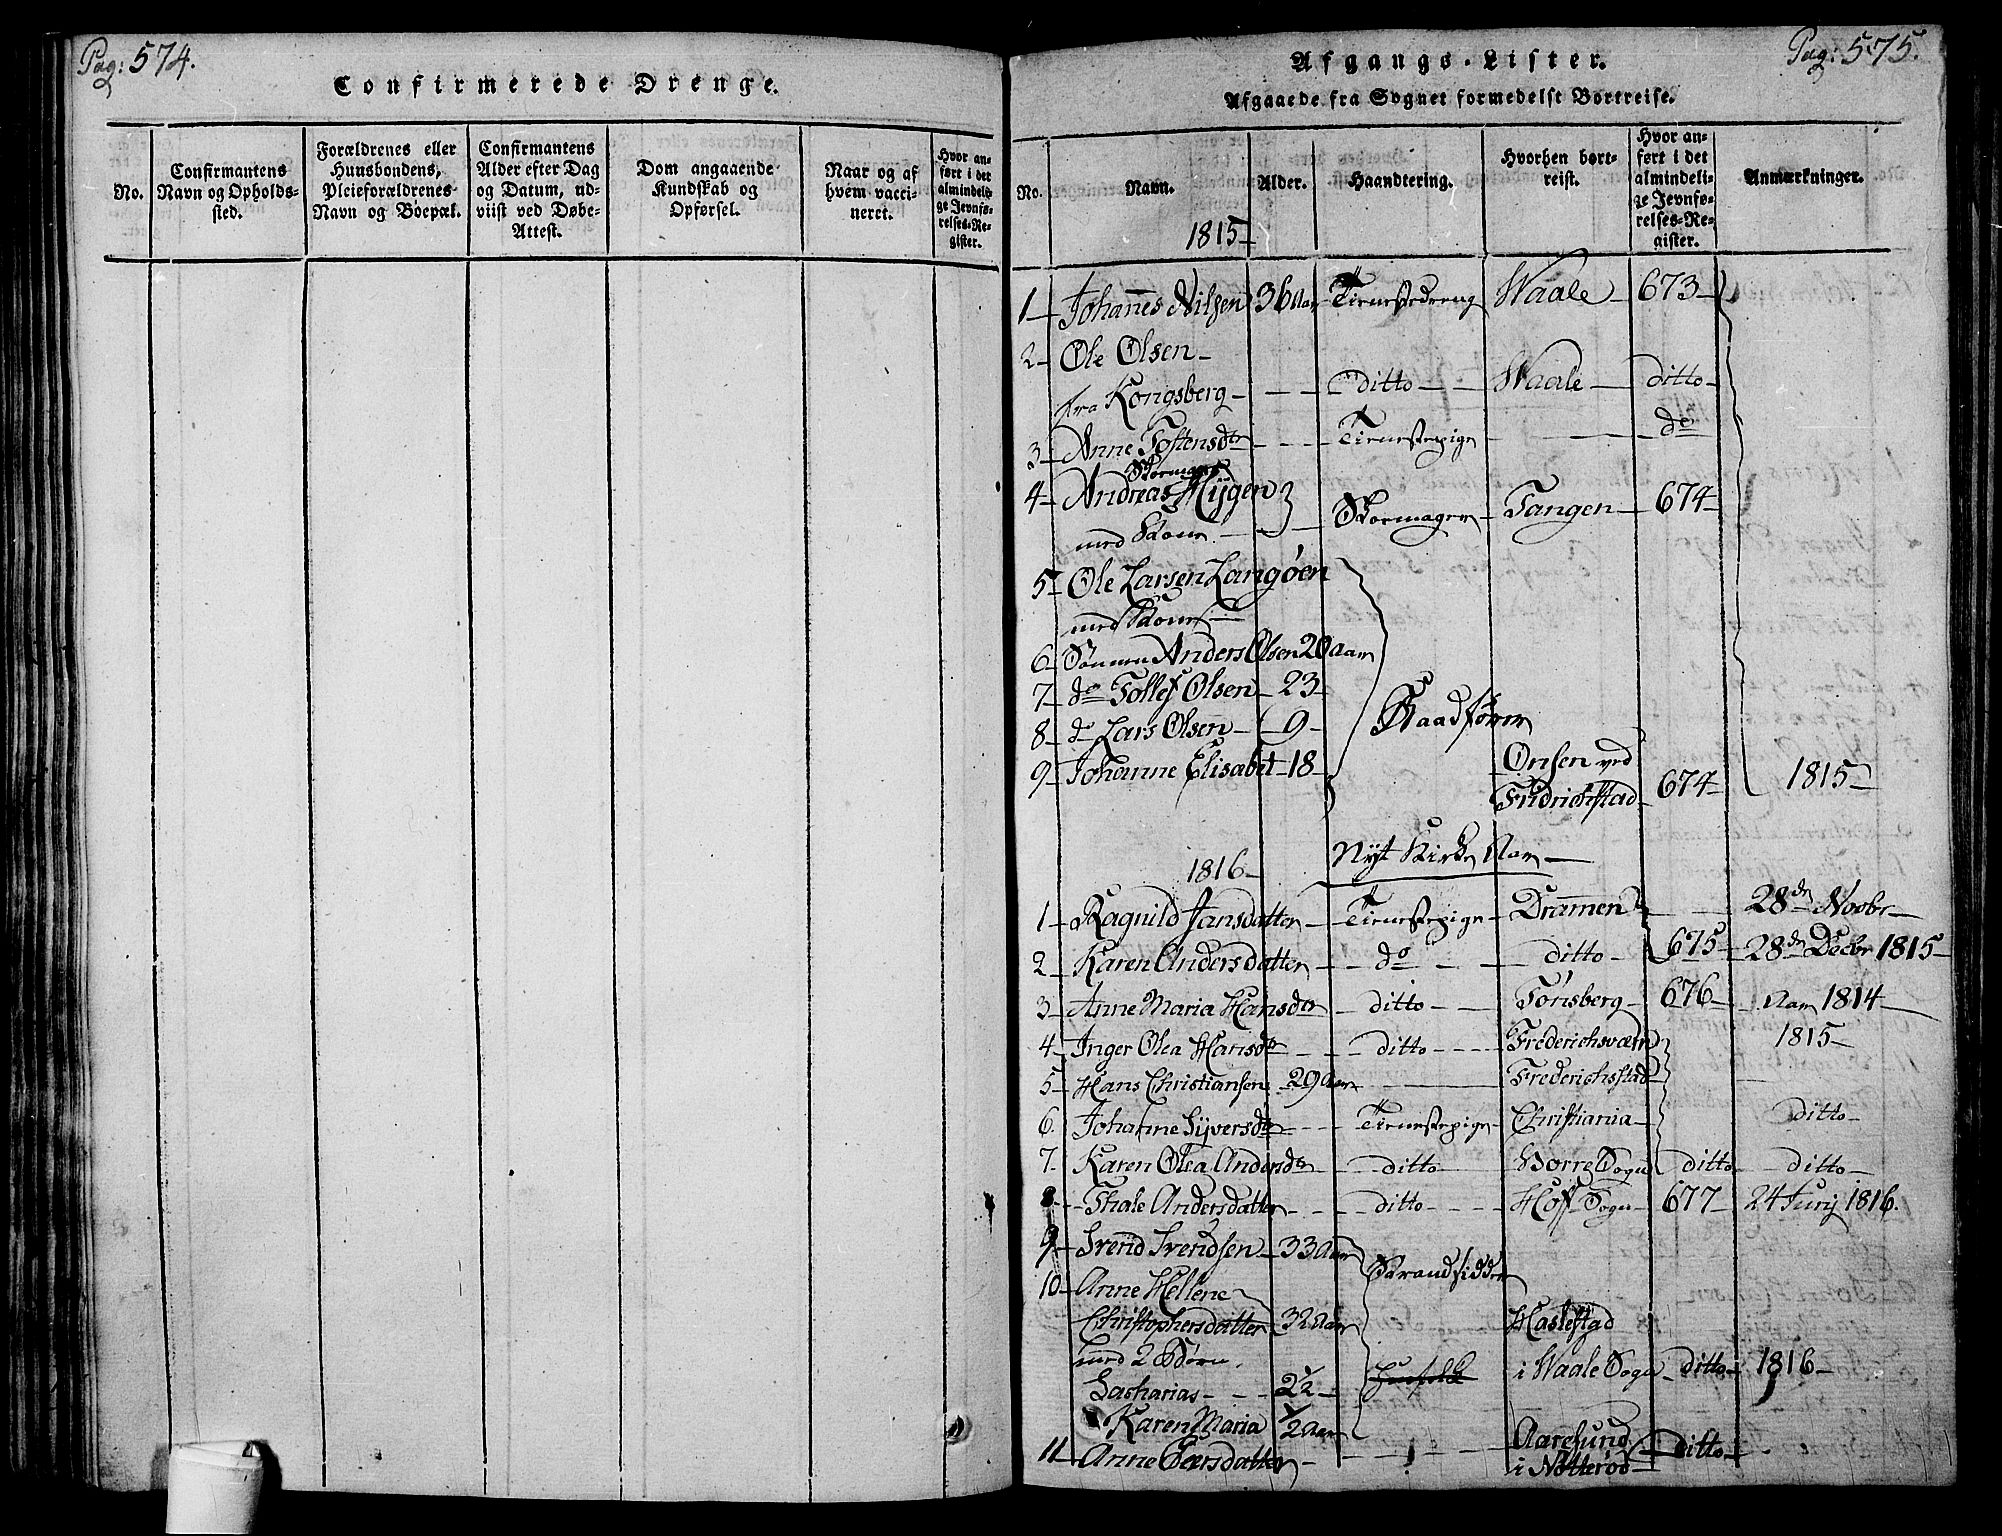 Pag: 574.
Confirmerede Drenge.
No.
Confirmantens
Navn og Opholds-
sted.
Forældrenes eller
Huusbondens,
Pleieforældrenes
Navn og Boepæl.
Confirmantens
Alder efter Dag
og Datum, ud-
viist ved Døbe-
Attest.
Dom angaaende
Kundskab og
Opførsel.
Naar og af
hvem vacci-
neret.
Hvor an-
ført i det
almindeli-
ge Jevnfø-
relses-Re-
gister.
Pag: 575.
Afgangs-Lister.
Afgaaede fra Sognet formedelst Bortreise.
No.
Navn.
Alder.
Haandtering.
Hvorhen bort-
reist.
Hvor an-
ført i det
almindeli-
ge Jevnfø-
relses-Re-
gister.
Anmærkninger.
1815
1 Johannes Nilsen 36 Aar Tienestedreng Waale 673
2 Ole Olsen
fra Kongsberg ditto Waale ditto
3 Anne Tostensdtr Tienestepige do
Skomager
4 Andreas Hÿgen
med Kone Skoemager Tangen 674
5 Ole Larsen Langøen
med Kone
6 Sønnen Anders Olsen 20 Aar
7 do Tollef Olsen 23
8 do Lars Olsen 9
9 Johanne Elisabet 18
Onsen ved
Fridrichstad 674 1815
Nyt Kirke Aar
1816
1 Ragnild Jansdatter Tienestepige Drammen 28de Novbr
2 Karen Andersdatter do ditto 675 28de Decbr 1815
3 Anne Maria Hansdtr ditto Tonsberg 676 Aar 1814
4 Inger Olea Hansdtr ditto Frederichsværn 1815
5 Hans Christiansen 29 Aar Frederichstad
6 Johanne Syversdtr Tienestepige Christiania ditto
7 Karen Olea Andersdtr ditto Borre Sogn ditto ditto
8 Thale Andersdatter ditto Hoff Sogn 677 24 Junj 1816.
9 Svend Svendsen 33 Aar
Strandsidder
10 Anne Hellene
Christophersdatter 32 Aar Haslestad
med 2 Børn. i Waale Sogn ditto 1816
Zacharias 2 1/2
Karen Maria 1/2 Aar
11 Anne Larsdatter Aaresund
i Nøtterøe ditto